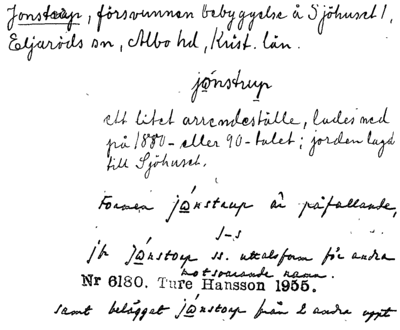 Jonstrup, försvunnen bebyggelse å Sjöhuset 1,
Eljaröds sn, Albo hd, Krist. län.
jónstrup
ett litet arrendeställe, lades ned
på 1880- eller 90-talet; jorden lagd
till Sjöhuset.
Formen jónstrup är påfallande,
s-s
jfr jónstorp ss. uttalsform för andra
motsvarande namn.
Nr 6180. Ture Hansson 1955.
samt belägget jónstorp från 2 andra uppt